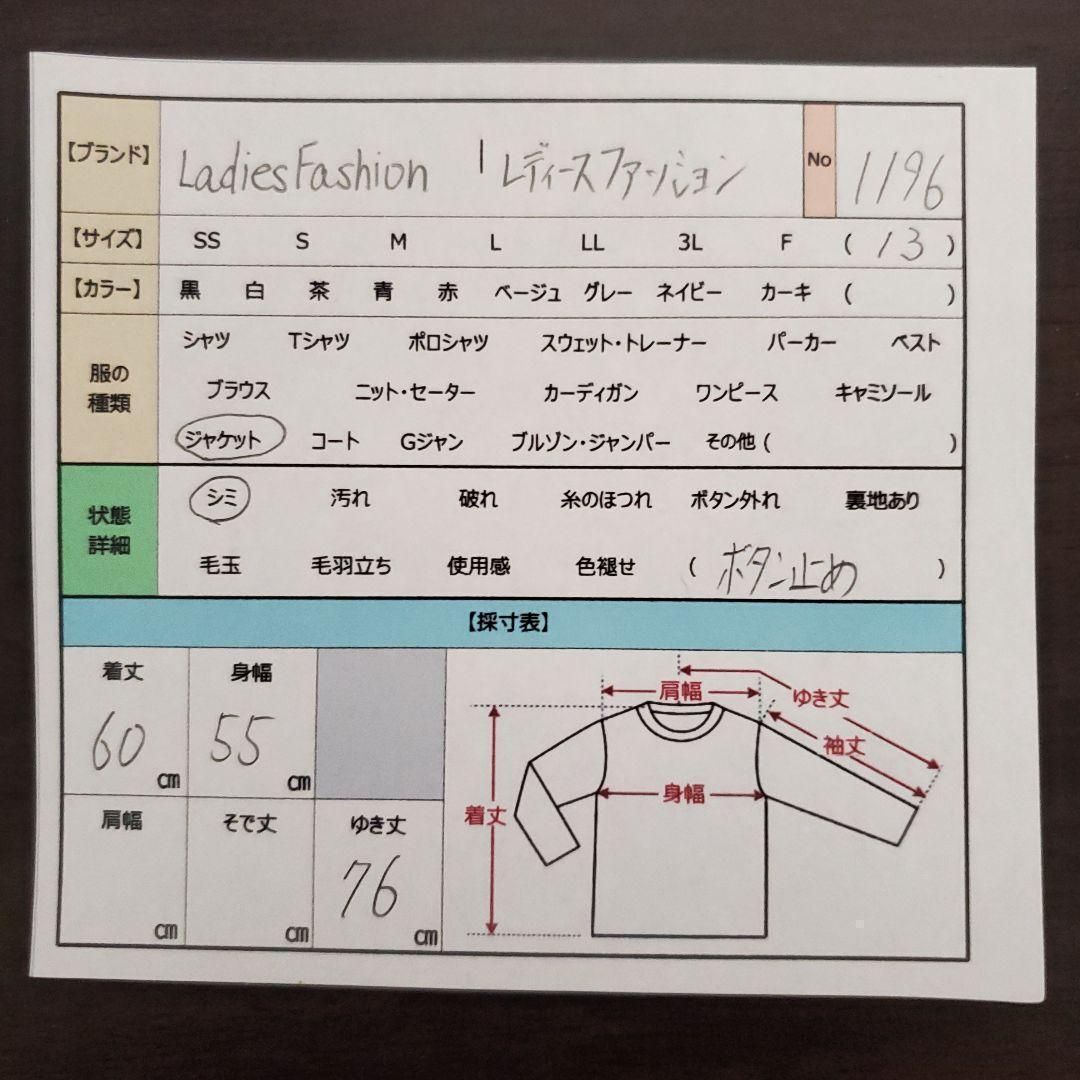 【ブランド】 Ladies Fashion | レディースファッション No 1196
【サイズ】 SS S M L LL 3L F ( 13 )
【カラー】 黒 白 茶 青 赤 ベージュ グレー ネイビー カーキ ( )
服の種類
シャツ Tシャツ ポロシャツ スウェット・トレーナー パーカー ベスト
ブラウス ニット・セーター カーディガン ワンピース キャミソール
ジャケット コート Gジャン ブルゾン・ジャンパー その他 ( )
状態詳細
シミ 汚れ 破れ 糸のほつれ ボタン外れ 裏地あり
毛玉 毛羽立ち 使用感 色褪せ ( ボタン止め )
【採寸表】
着丈 身幅
60 cm 55 cm
肩幅 そで丈 ゆき丈
cm cm 76 cm
肩幅 ゆき丈
袖丈
身幅
着丈